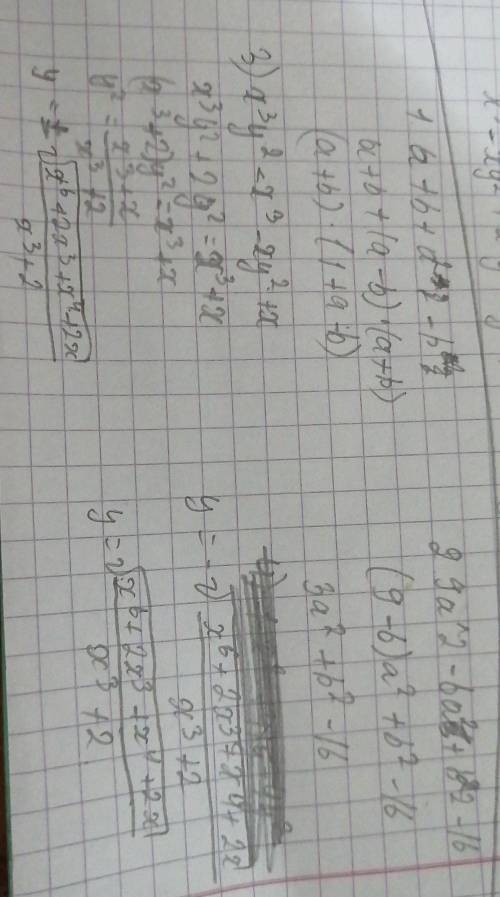 1 a+b+a^2-b^2
a+b+(a-b)·(a+b)
(a+b)·(1+a-b)
3) x^3y^2=x^3-2y^2+x
x^3y^2+2y^2=x^3+x
(x^3+2)y^2=x^3+x
y^2=\frac{x^3+x}{x^3+2}
y=±\frac{\sqrt{x^6+2x^3+x^4+2x}}{x^3+2}
9a^2-6a^2+b^2-16
(9-6)a^2+b^2-16
3a^2+b^2-16
y=-\frac{\sqrt{x^6+2x^3+x^4+2x}}{x^3+2}
y=\frac{\sqrt{x^6+2x^3+x^4+2x}}{x^3+2}